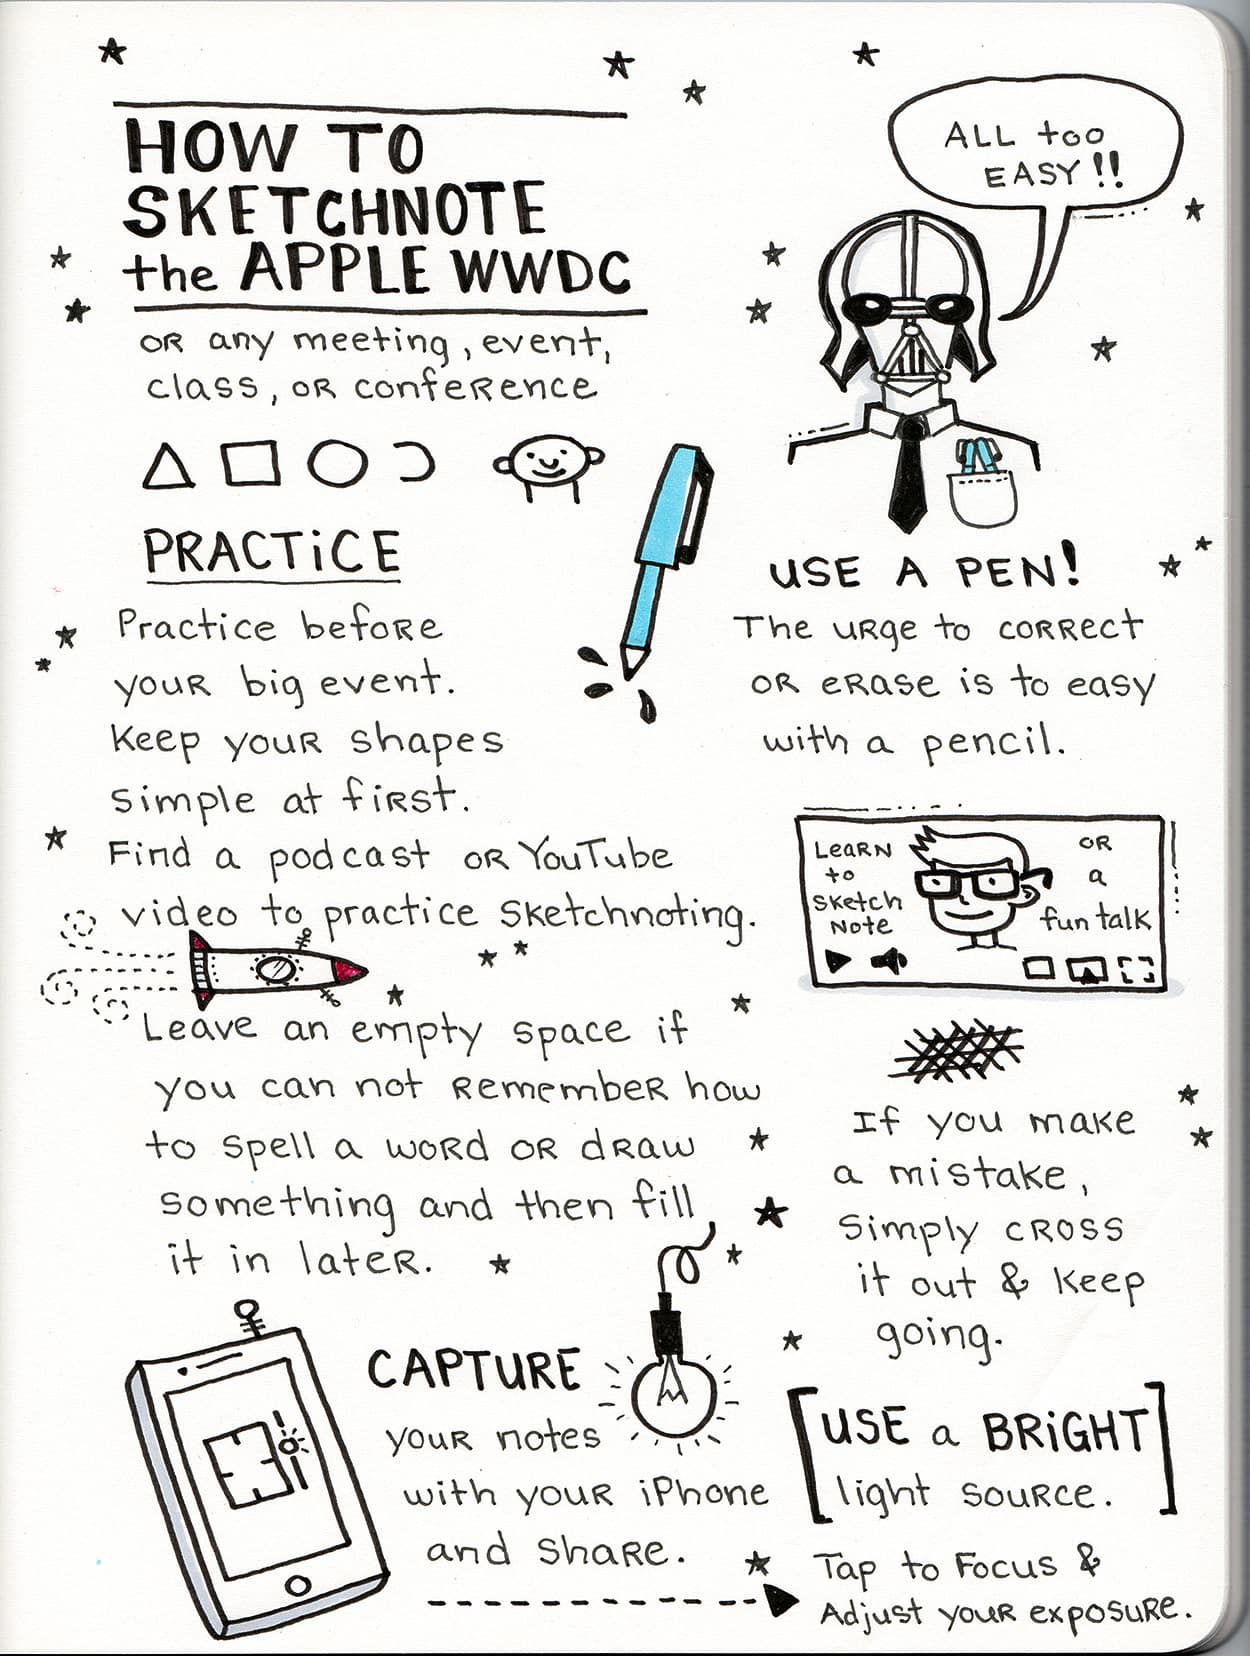 HOW TO
SKETCHNOTE
the APPLE WWDC
OR any meeting, event,
class, OR conference
ALL too
EASY!!
PRACTICE
Practice before
your big event.
Keep your shapes
simple at first.
Find a podcast OR YouTube
video to practice sketchnoting.
USE A PEN!
The urge to correct
OR erase is to easy
with a pencil.
Learn
to
Sketch
Note
OR
a
fun talk
Leave an empty space if
you can not remember how
to spell a word or draw
something and then fill
it in later.
If you make
a mistake,
Simply cross
it out & keep
going.
CAPTURE
your notes
with your iPhone
and share.
USE a BRIGHT
light source.
Tap to Focus &
Adjust your exposure.